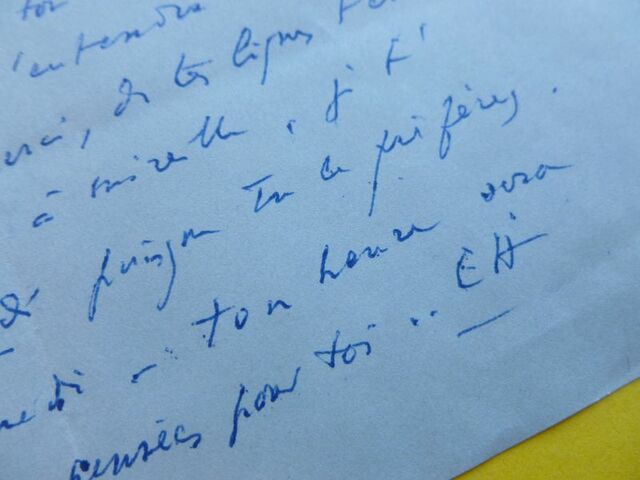 ton
entendre
, de tes lignes
à mireille, j t'
puisque tu le préfères.
ton heure sera
pensées pour toi .. EH